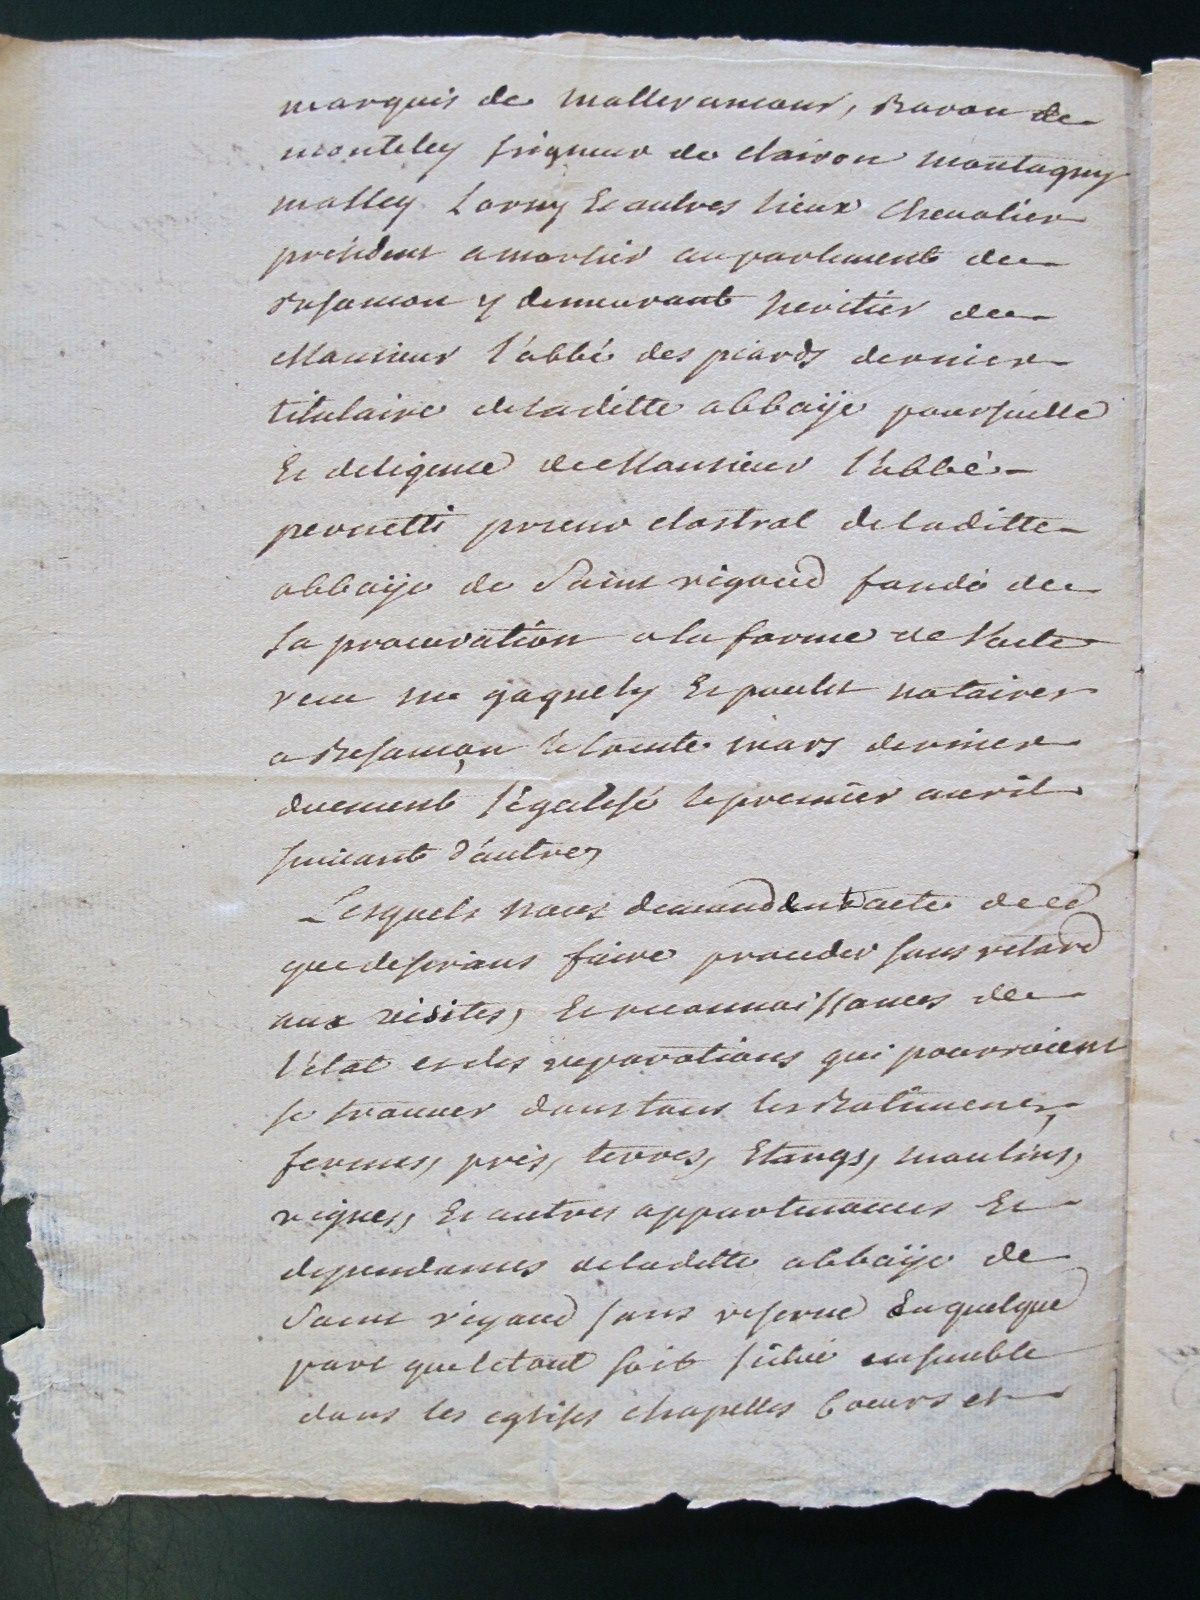 marquis de mallerancour, Baron de
monteley seigneur de clairon montagny
malley Lorny Et autres lieux chevalier
président a mortier au parlement de
Besancon y demeurant heritier de
Monsieur l'abbé des piards dernier
titulaire de la ditte abbaÿe poursuitte
Et deligence de Monsieur l'abbé
pernetti prieur clostral de la ditte
abbaÿe de Saint rigaud fondé de
sa procuration a la forme de l'acte
recu me gaguely Et poulet notaires
a Besançon le trente mars dernier
duement légalisé le premier avril
suivant d'autre,
Lesquels nous demandent acte de ce
que desirans faire proceder sans retard
aux visites, Et reconnoissances de
l'état et des reparations qui pourroient
se trouver dans tous les Batimens,
fermes, près, terres, Etangs, moulins,
vignes, Et autres appartenances Et
dependances de la ditte abbaÿe de
Saint rigaud sans reserve En quelque
part que le tout soit situé ensemble
dans les eglises chapelles Coeurs et